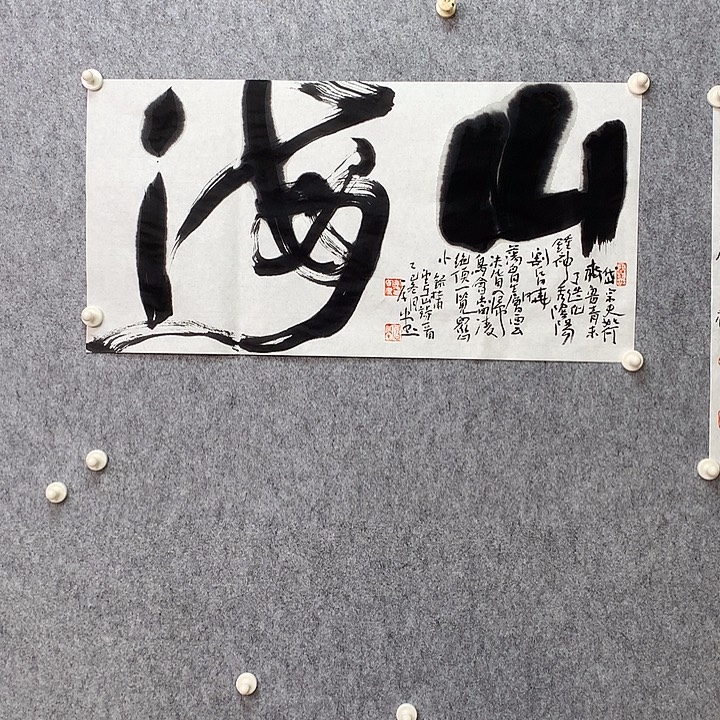 山海
岱宗夫如何
齊魯青未
了造化
鍾神秀陰陽
割昏曉
蕩胸生層雲
決眥入歸
鳥會當凌
絕頂一覽眾山
小
望岳詩一首
乙巳